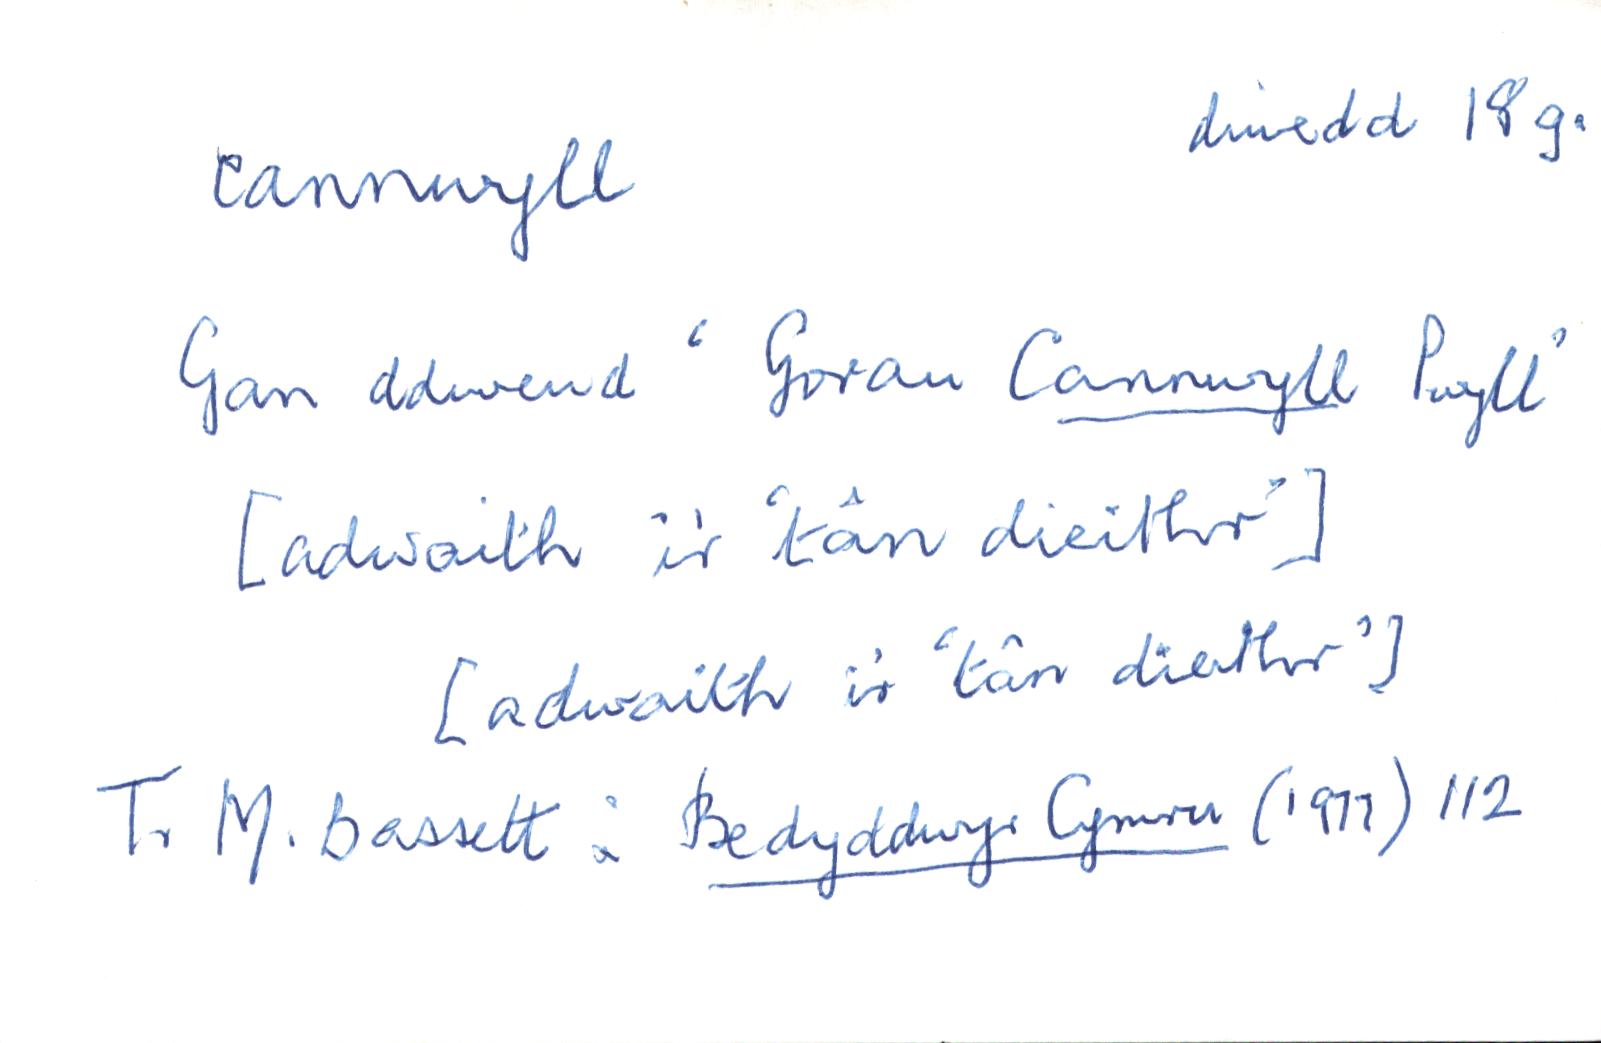 diwedd 18 g.
cannwyll
Gan ddweud ‘Gorau Cannwyll Pwyll’
[adwaith i'r ‘tân dieithr’]
[adwaith i'r ‘tân dieithr’]
T. M. Bassett : Bedyddwyr Cymru (1977) 112